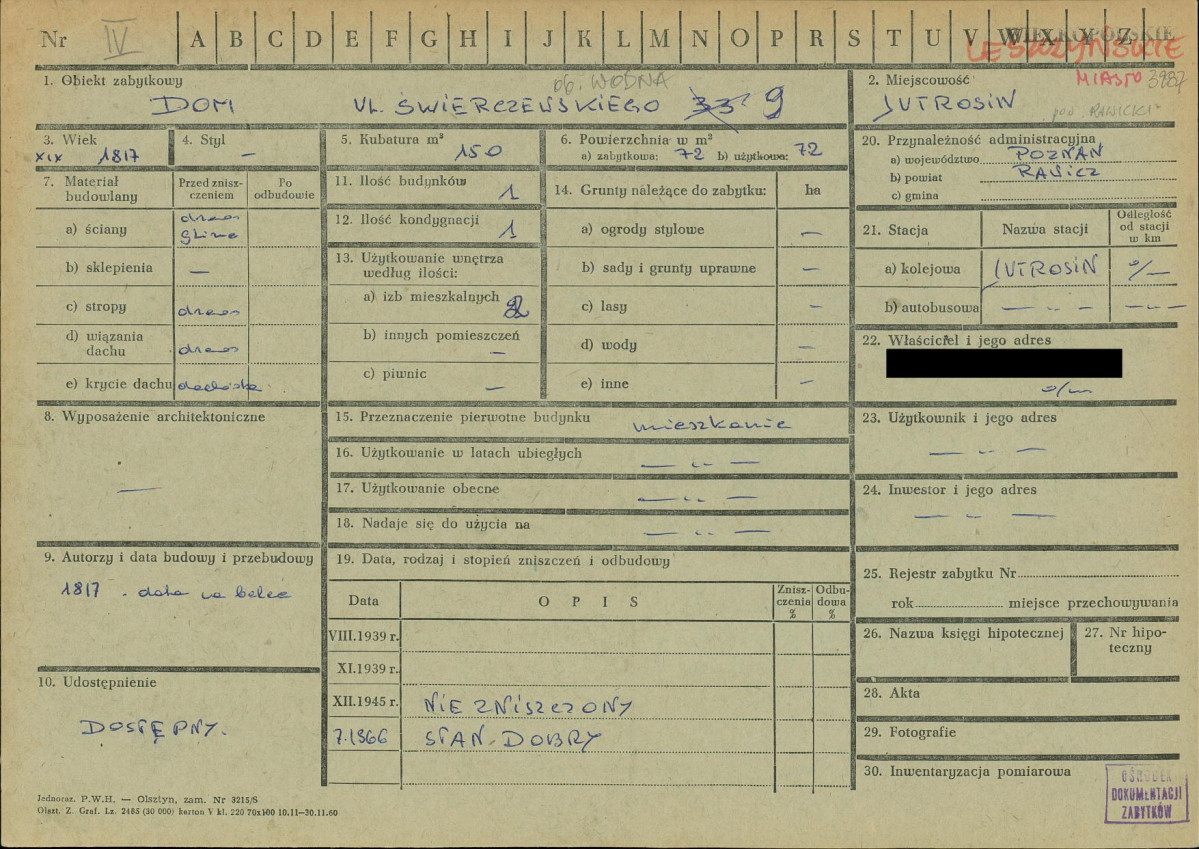 Nr IV A B C D E F G H I J K L M N O P R S T U V W X Y Z
WIELKOPOLSKIE
LESZCZYŃSKIE
MIASTO 3987
1. Obiekt zabytkowy ob. WODNA
DOM UL. ŚWIERCZEWSKIEGO 33 9
2. Miejscowość
JUTROSIN
pow. RAWICKI
3. Wiek
XIX 1817
4. Styl
—
5. Kubatura m³
150
6. Powierzchnia w m²
a) zabytkowa: 72 b) użytkowa: 72
7. Materiał budowlany
Przed zniszczeniem
Po odbudowie
a) ściany drewno glina
b) sklepienia —
c) stropy drewno
d) wiązania dachu drewno
e) krycie dachu dachówka
8. Wyposażenie architektoniczne
—
9. Autorzy i data budowy i przebudowy
1817 - data na belce
10. Udostępnienie
DOSTĘPNY.
11. Ilość budynków 1
12. Ilość kondygnacji 1
13. Użytkowanie wnętrza według ilości:
a) izb mieszkalnych 2
b) innych pomieszczeń —
c) piwnic —
14. Grunty należące do zabytku: ha
a) ogrody stylowe —
b) sady i grunty uprawne —
c) lasy —
d) wody —
e) inne —
15. Przeznaczenie pierwotne budynku mieszkanie
16. Użytkowanie w latach ubiegłych — „ —
17. Użytkowanie obecne — „ —
18. Nadaje się do użycia na — „ —
19. Data, rodzaj i stopień zniszczeń i odbudowy
Data OPIS Zniszczenia % Odbudowa %
VIII.1939 r.
XI.1939 r.
XII.1945 r. NIE ZNISZCZONY
7.1966 STAN-DOBRY
20. Przynależność administracyjna
a) województwo POZNAŃ
b) powiat RAWICZ
c) gmina
21. Stacja Nazwa stacji Odległość od stacji w km
a) kolejowa JUTROSIN
b) autobusowa — „ — — „ —
22. Właściciel i jego adres
23. Użytkownik i jego adres
— „ —
24. Inwestor i jego adres
— „ —
25. Rejestr zabytku Nr
rok miejsce przechowywania
26. Nazwa księgi hipotecznej
27. Nr hipoteczny
28. Akta
29. Fotografie
30. Inwentaryzacja pomiarowa
OŚRODEK
DOKUMENTACJI
ZABYTKÓW
Jednoraz. P.W.H. — Olsztyn, zam. Nr 3215/S
Olszt. Z. Graf. Lz. 2485 (30 000) karton V kl. 220 70x100 10.11—30.11.60